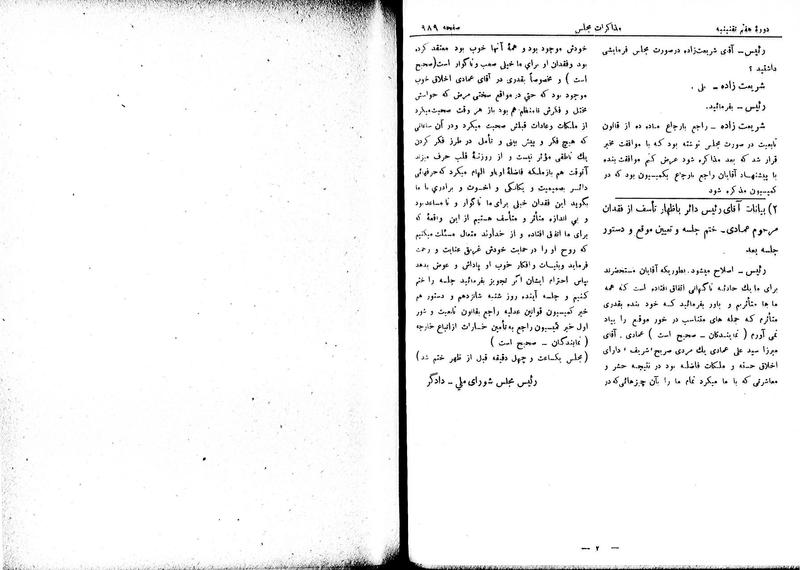 دورهٔ هفتم تقنینیه
مذاکرات مجلس
صفحه ۹۸۹
رئیس ـ آقای شریعت‌زاده درصورت مجلس فرمایشی
داشتید ؟
شریعت زاده ـ بلی .
رئیس ـ بفرمائید.
شریعت زاده ـ راجع بارجاع ماده ده از قانون
تابعیت در صورت مجلس نوشته بود که با موافقت مخبر
قرار شد که بعد مذاکره شود عرض کنم موافقت بنده
با پیشنهاد آقایان راجع بارجاع بکمیسیون بود که در
کمیسیون مذاکره شود
۲) بیانات آقای رئیس دائر باظهار تأسف از فقدان
مرحوم عمادی ـ ختم جلسه و تعیین موقع و دستور
جلسه بعد
رئیس ـ اصلاح میشود. بطوریکه آقایان مستحضرند
برای ما یك حادثه ناگهانی اتفاق افتاده است که همه
ما ها متأثریم و باور بفرمائید که خود بنده بقدری
متأثرم که جمله های متناسب در خور موقع را بیاد
نمی آورم ( نمایندگان ـ صحیح است ) عمادی . آقای
میرزا سید علی عمادی یك مردی صریح شریف ، دارای
اخلاق حسنه و ملکات فاضله بود در نتیجه حشر و
معاشرتی که با ما میکرد تمام ما را بآن چیزهائی‌که در
خودش موجود بود و همهٔ آنها خوب بود معتقد کرده
بود و فقدان او برای ما خیلی صعب و ناگوار است(صحیح
است ) و مخصوصاً بقدری در آقای عمادی اخلاق خوب
موجود بود که حتی در مواقع سختی مرض که حواسش
مختل و فکرش نامنظم هم بود باز هر وقت صحبت میکرد
از ملکات وعادات قبلش صحبت میکرد ودر آن ساعاتی
که هیچ فکر و پیش بینی و تأمل در طرز فکر کردن
یك ناطقی مؤثر نیست و از روزنهٔ قلب حرف میزند
آنوقت هم باز ملکه فاضلهٔ او باو الهام میکرد که حرفهائی
دائر بصمیمیت و یگانگی و اخوت و برادری با ما
بگوید این فقدان خیلی برای ما ناگوار و نامساعد بود
و بی اندازه متأثر و متأسف هستیم از این واقعهٔ که
برای ما اتفاق افتاده و از خداوند متعال مسئلت میکنیم
که روح او را در حمایت خودش غریق عنایت و رحمت
فرماید وبنیات وافکار خوب او پاداش و عوض بدهد
بپاس احترام ایشان اگر تجویز بفرمائید جلسه را ختم
کنیم و جلسه آینده روز شنبه شانزدهم و دستور هم
خبر کمیسیون قوانین عدلیه راجع بقانون تابعیت و شور
اول خبر کمیسیون راجع به تأمین خسارات ازاتباع خارجه
( نمایندگان ـ صحیح است )
(مجلس یکساعت و چهل دقیقه قبل از ظهر ختم شد)
رئیس مجلس شورای ملی ـ دادگر
— ۲ —